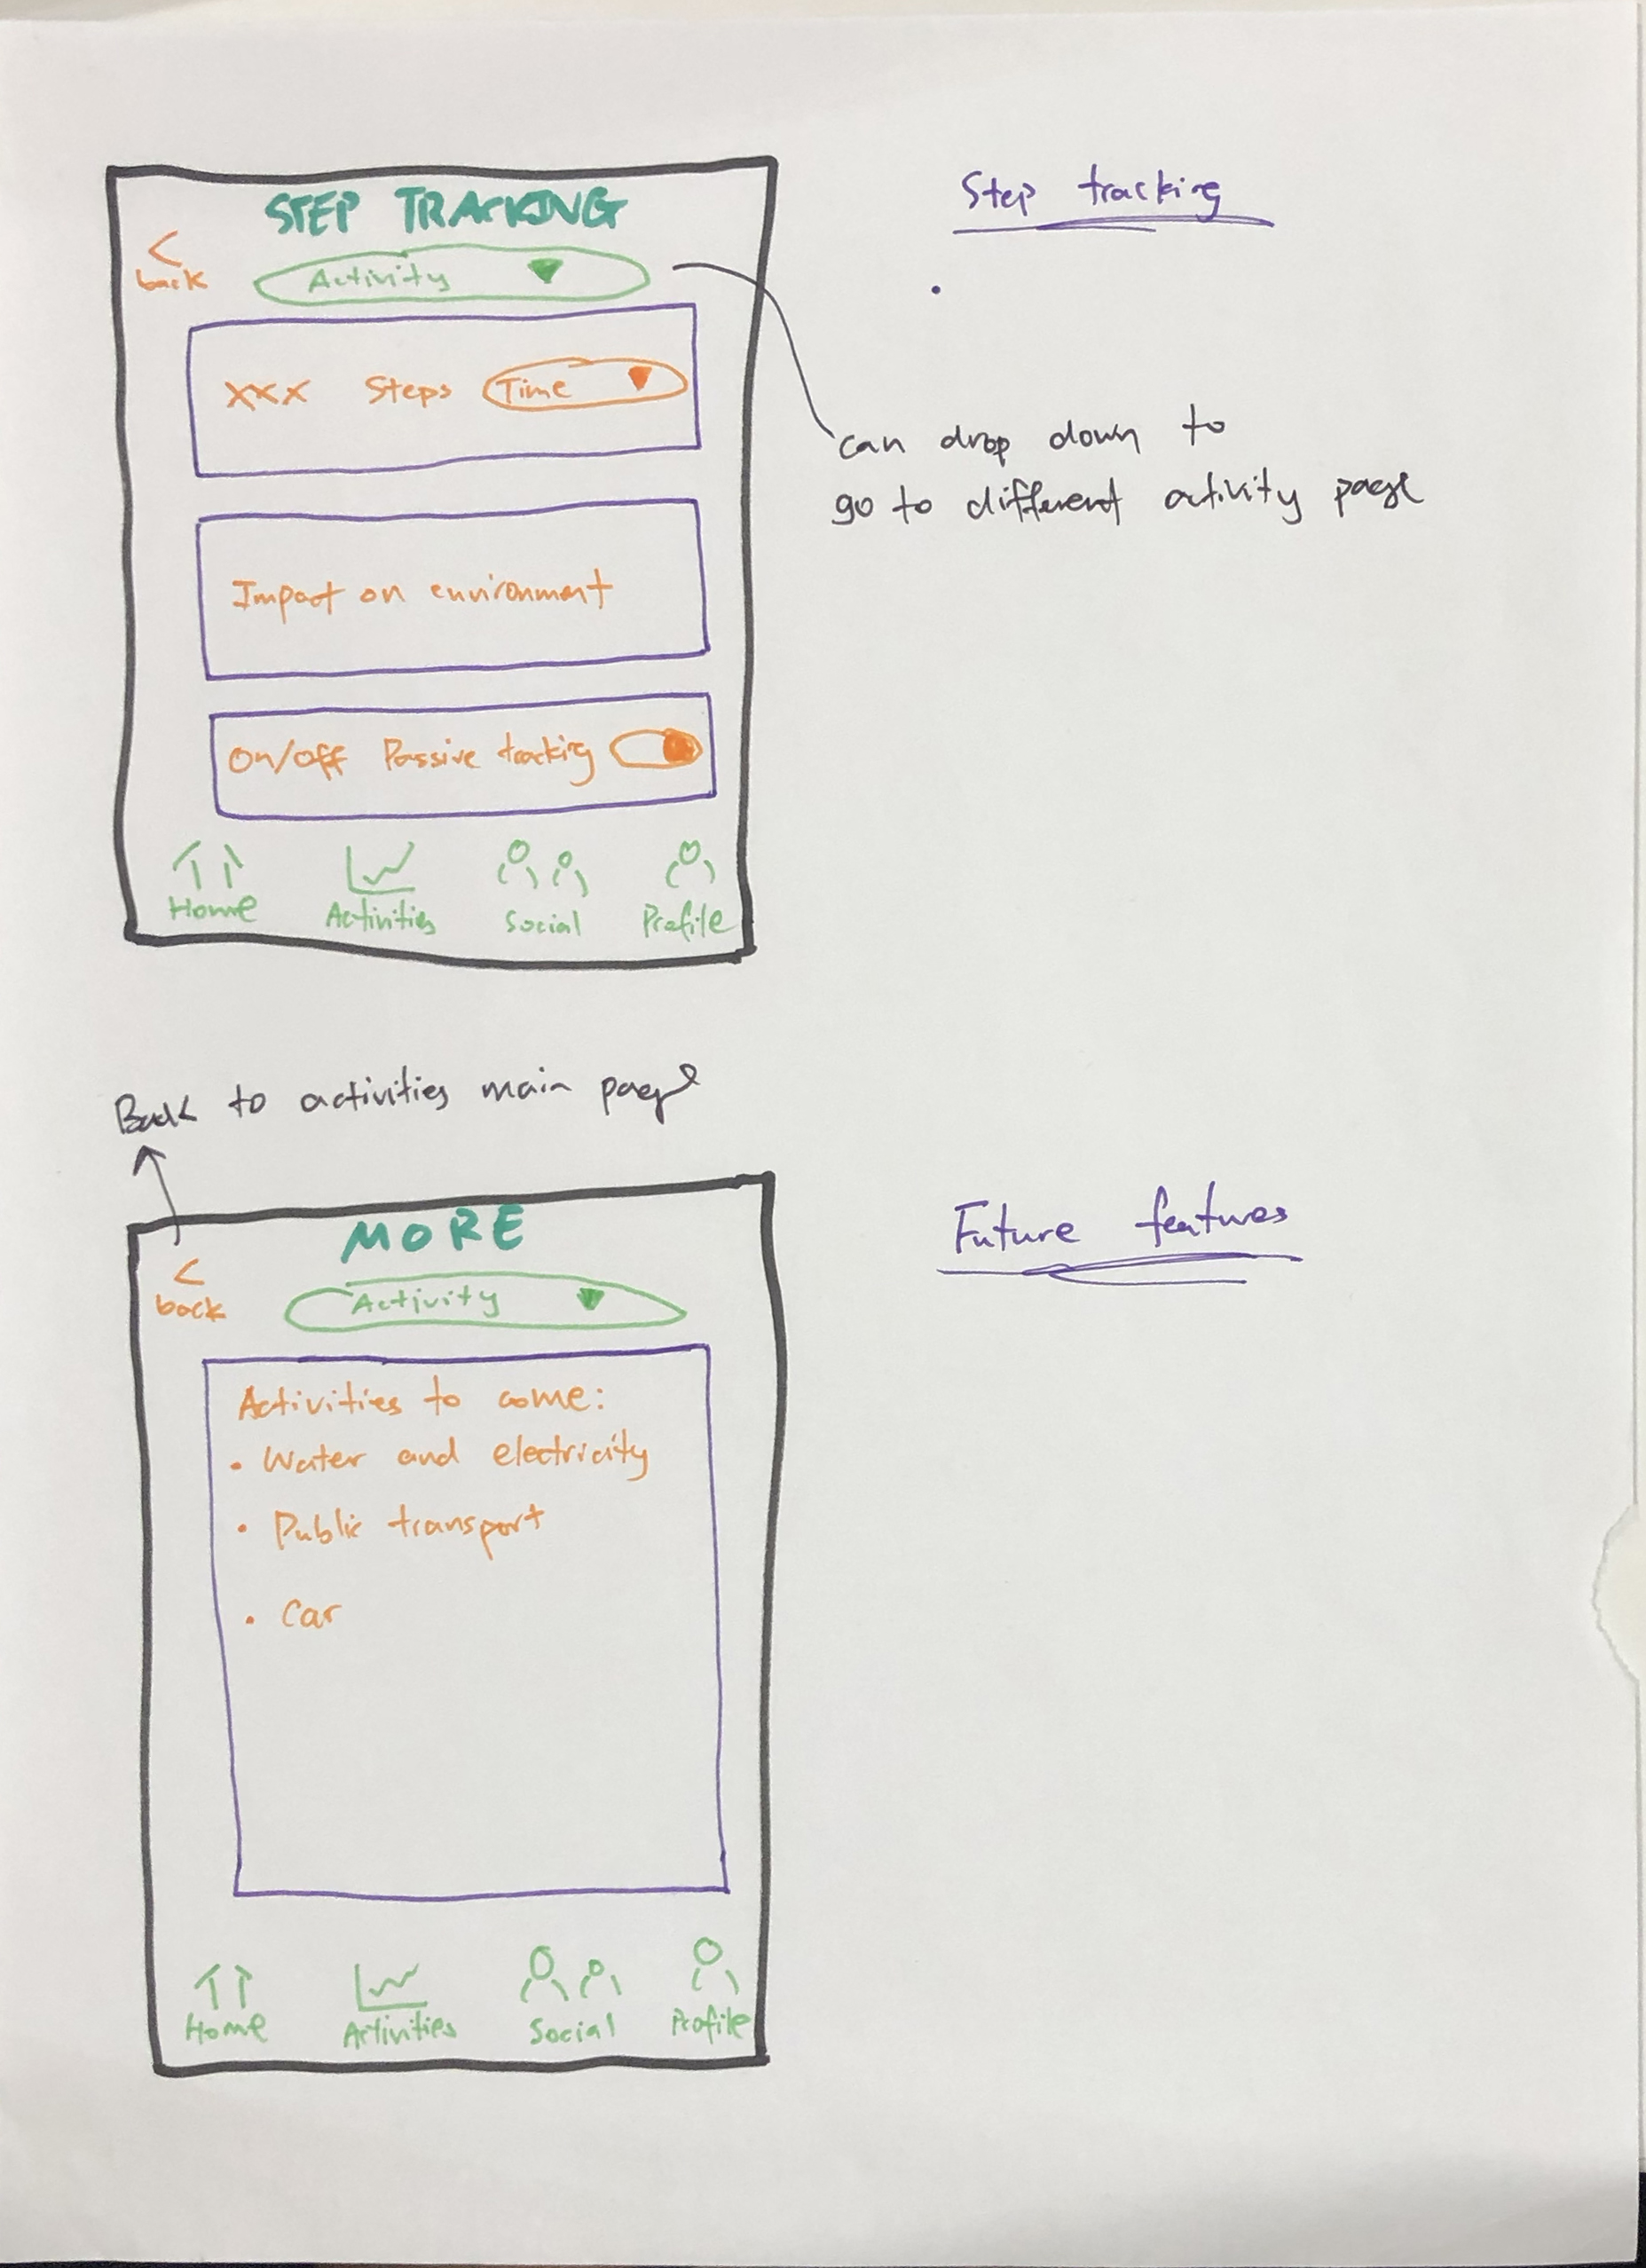 STEP TRACKING
< back
Activity
XXX Steps Time
Impact on environment
On/off Passive tracking
Home Activities Social Profile
Step tracking
can drop down to
go to different activity page
Back to activities main page
MORE
< back
Activity
Activities to come:
• Water and electricity
• Public transport
• Car
Home Activities Social Profile
Future features